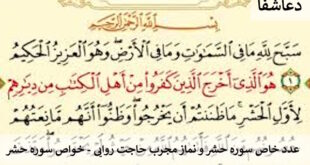 دعاشفا
بِسْمِ اللَّهِ الرَّحْمَٰنِ الرَّحِيمِ
سَبَّحَ لِلَّهِ مَا فِي السَّمَاوَاتِ وَمَا فِي الْأَرْضِ وَهُوَ الْعَزِيزُ الْحَكِيمُ
۱ هُوَ الَّذِي أَخْرَجَ الَّذِينَ كَفَرُوا مِنْ أَهْلِ الْكِتَابِ مِن دِيَارِهِمْ
لِأَوَّلِ الْحَشْرِ مَا ظَنَنتُمْ أَن يَخْرُجُوا وَظَنُّوا أَنَّهُم مَّانِعَتُهُمْ
عدد خاص سوره حشر و نماز مجرب حاجت روایی - خواص سوره حشر